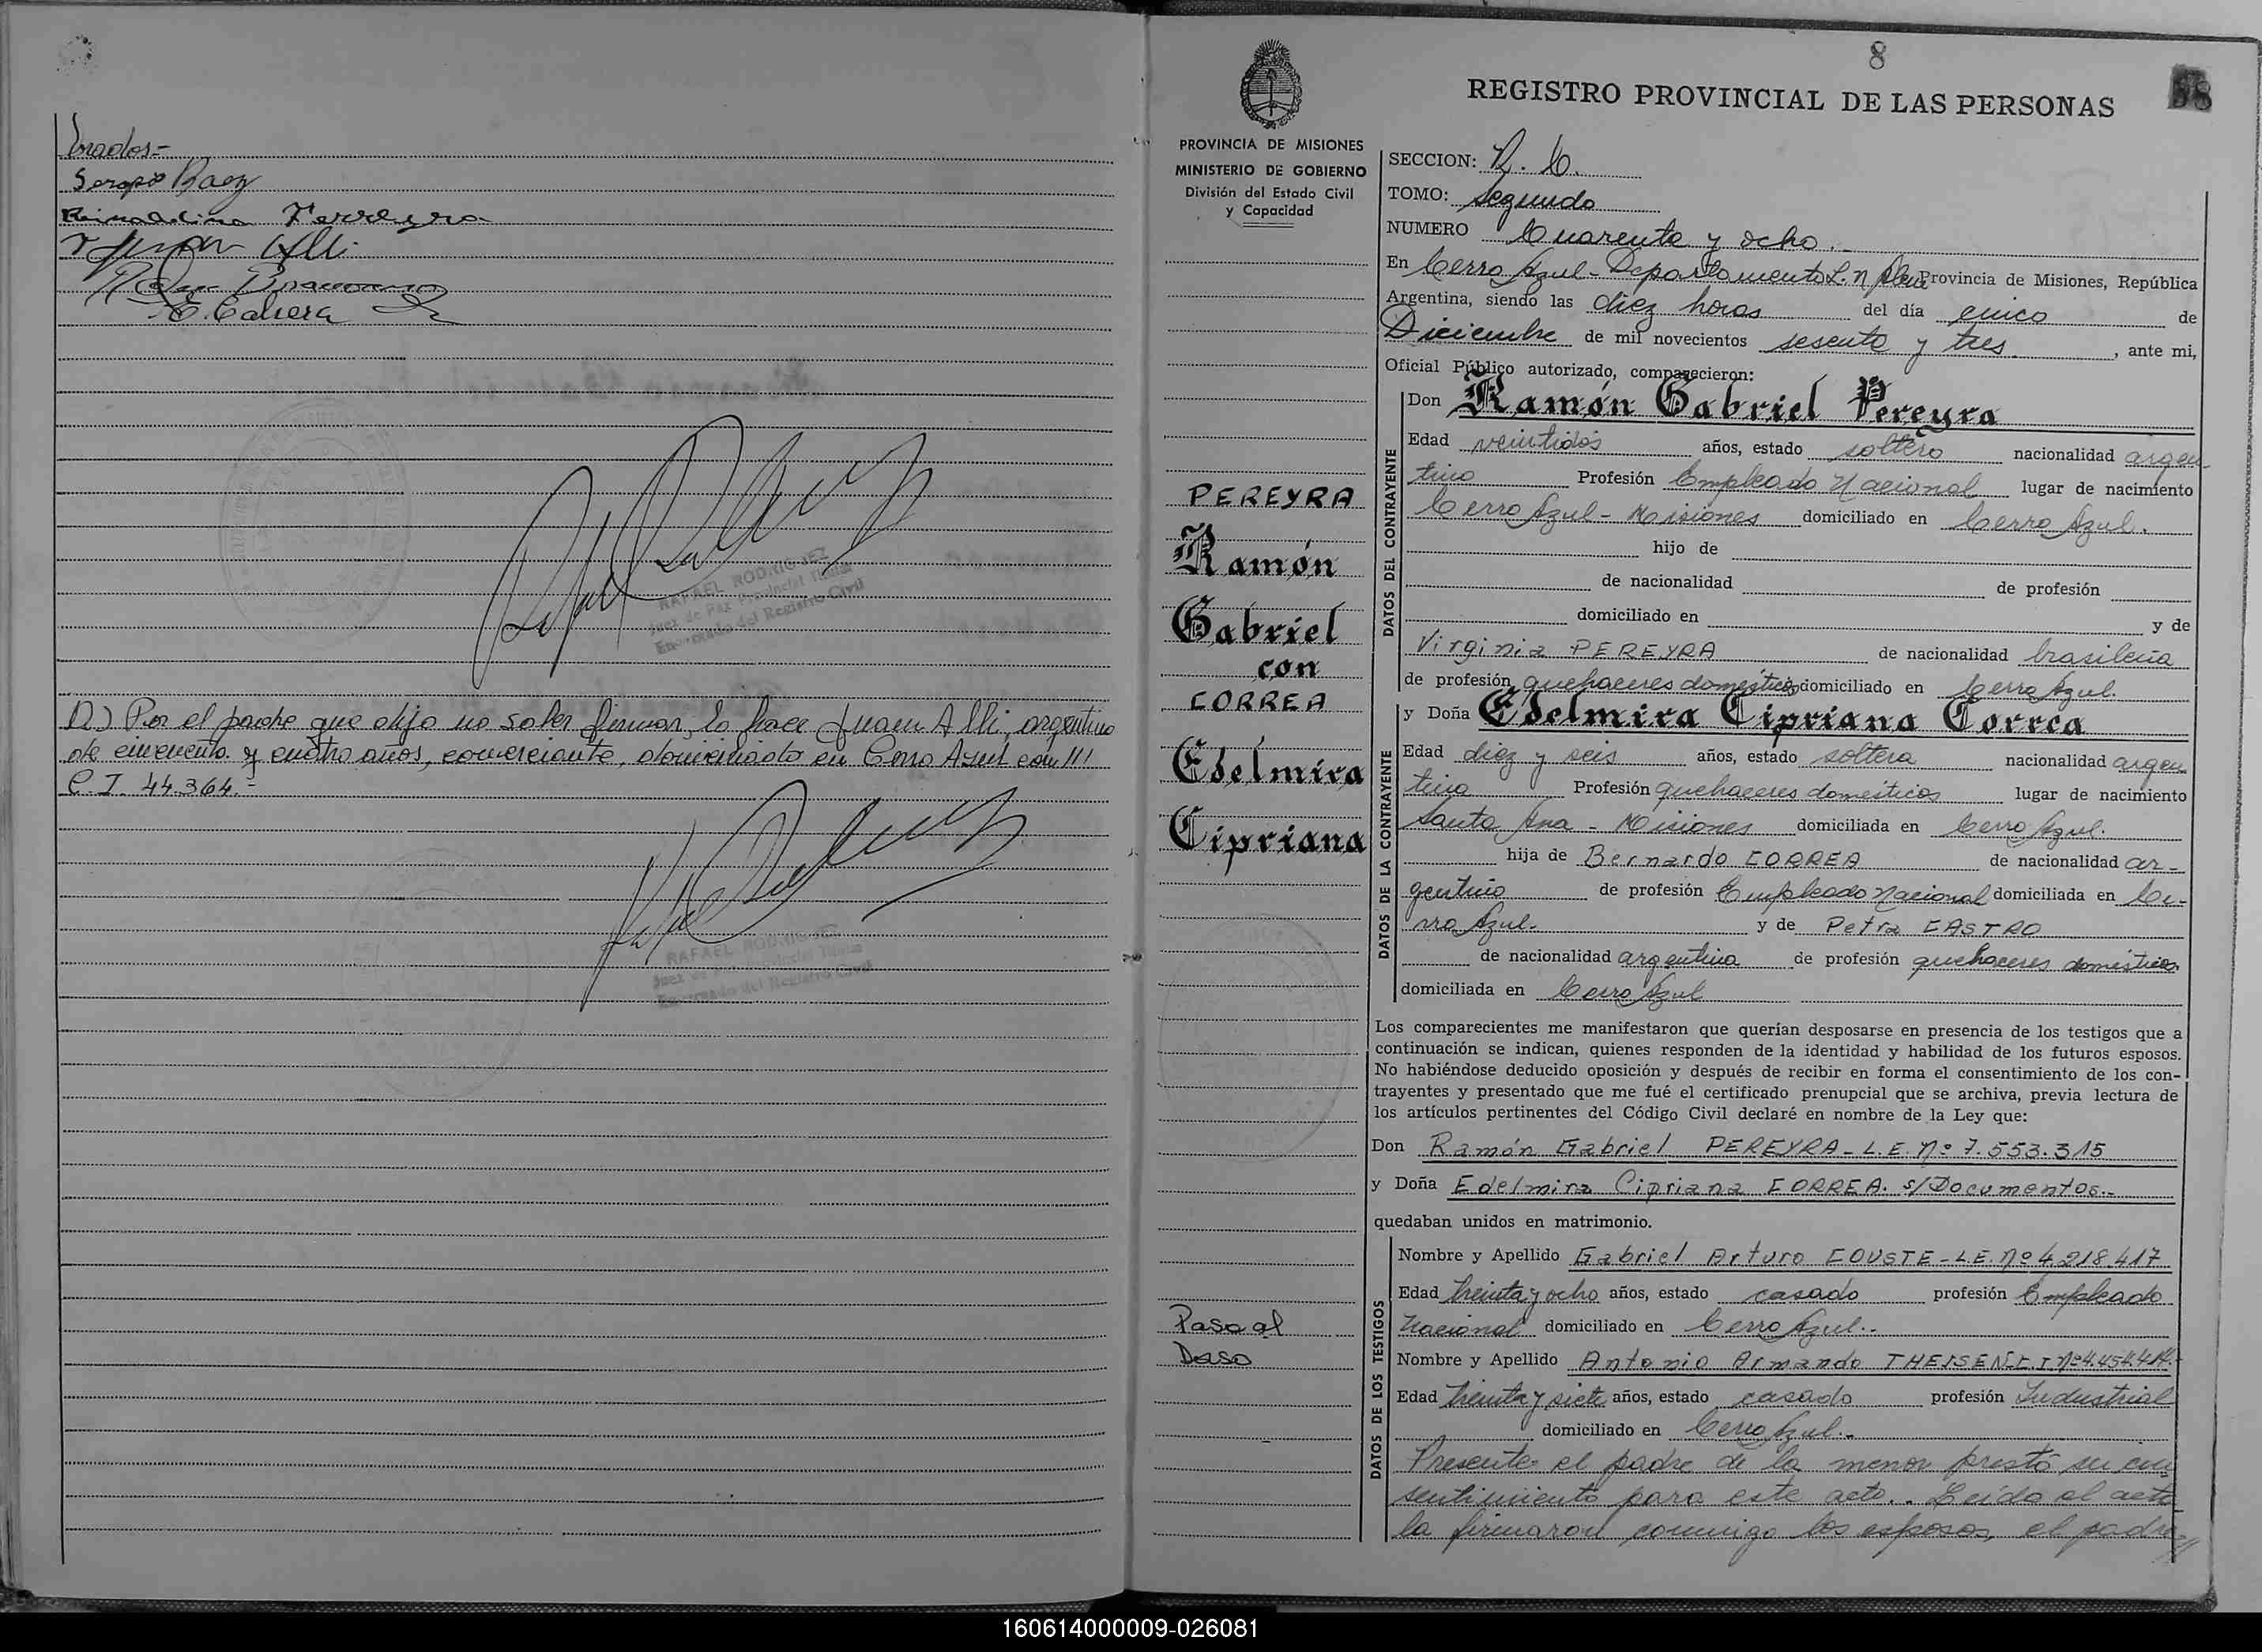 Serapio Baez
E. Cabrera
RAFAEL RODRIGUEZ
Juez de Paz Provincial Titular
Encargado del Registro Civil
Por el padre que dijo no saber firmar, lo hace Juan Alli, argentino
de cincuenta y cuatro años, comerciante, domiciliado en Cerro Azul con
C.I. 44.364.-
RAFAEL RODRIGUEZ
Juez de Paz Provincial Titular
Encargado del Registro Civil
8
REGISTRO PROVINCIAL DE LAS PERSONAS
58
PROVINCIA DE MISIONES
MINISTERIO DE GOBIERNO
División del Estado Civil
y Capacidad
PEREYRA
Ramón
Gabriel
con
CORREA
Edelmira
Cipriana
Pasa al
Daso
SECCION:
TOMO: Segundo
NUMERO Cuarenta y ocho.-
En Cerro Azul - Departamento L. N. Alem Provincia de Misiones, República
Argentina, siendo las diez horas del día cinco de
Diciembre de mil novecientos sesenta y tres, ante mi,
Oficial Público autorizado, comparecieron:
DATOS DEL CONTRAYENTE
Don Ramón Gabriel Pereyra
Edad veintidós años, estado soltero nacionalidad argen
tino Profesión Empleado Nacional lugar de nacimiento
Cerro Azul - Misiones domiciliado en Cerro Azul.
hijo de
de nacionalidad de profesión
domiciliado en y de
Virginia PEREYRA de nacionalidad brasileña
de profesión quehaceres domésticos domiciliado en Cerro Azul.
DATOS DE LA CONTRAYENTE
y Doña Edelmira Cipriana Correa
Edad diez y seis años, estado soltera nacionalidad argen
tina Profesión quehaceres domésticos lugar de nacimiento
Santa Ana - Misiones domiciliada en Cerro Azul.
hija de Bernardo CORREA de nacionalidad ar-
gentino de profesión Empleado Nacional domiciliada en Ce-
rro Azul. y de Petra CASTRO
de nacionalidad argentina de profesión quehaceres domésticos
domiciliada en Cerro Azul
Los comparecientes me manifestaron que querían desposarse en presencia de los testigos que a
continuación se indican, quienes responden de la identidad y habilidad de los futuros esposos.
No habiéndose deducido oposición y después de recibir en forma el consentimiento de los con-
trayentes y presentado que me fué el certificado prenupcial que se archiva, previa lectura de
los artículos pertinentes del Código Civil declaré en nombre de la Ley que:
Don Ramón Gabriel PEREYRA - L.E. Nº 7.553.315
y Doña Edelmira Cipriana CORREA. s/Documentos.-
quedaban unidos en matrimonio.
DATOS DE LOS TESTIGOS
Nombre y Apellido Gabriel Arturo COUSTE - L.E. Nº 4.218.417
Edad treinta y ocho años, estado casado profesión Empleado
Nacional domiciliado en Cerro Azul.-
Nombre y Apellido Antonio Armando THEISEN Nº 4.454.414.-
Edad treinta y siete años, estado casado profesión Industrial
domiciliado en Cerro Azul.-
Presente el padre de la menor prestó su con
sentimiento para este acto.- Leída el acta
la firmaron conmigo los esposos, el padre
160614000009-026081